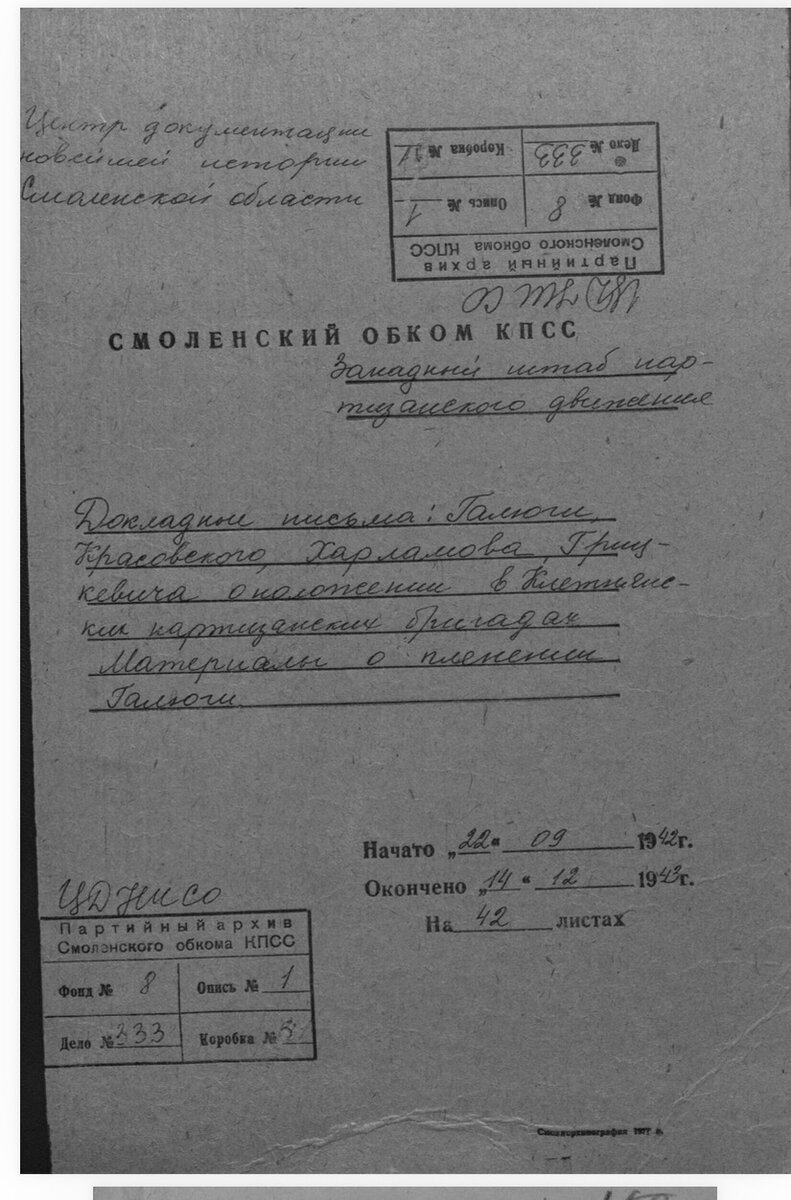 Центр документации
новейшей истории
Смоленской области
Партийный архив
Смоленского обкома КПСС
Фонд № 8 Опись № 1
Дело № 333 Коробка №
ЦДНИСО
СМОЛЕНСКИЙ ОБКОМ КПСС
Западный штаб пар-
тизанского движения
Докладные письма: Галюги,
Красовского, Харламова, Гриц-
кевича о положении в Клетнянс-
ких партизанских бригадах
Материалы о пленении
Галюги.
Начато „22“ 09 1942г.
Окончено „14“ 12 1943г.
На 42 листах
ЦДНИСО
Партийный архив
Смоленского обкома КПСС
Фонд № 8 Опись № 1
Дело № 333 Коробка №
Смолполиграфия 1977 г.